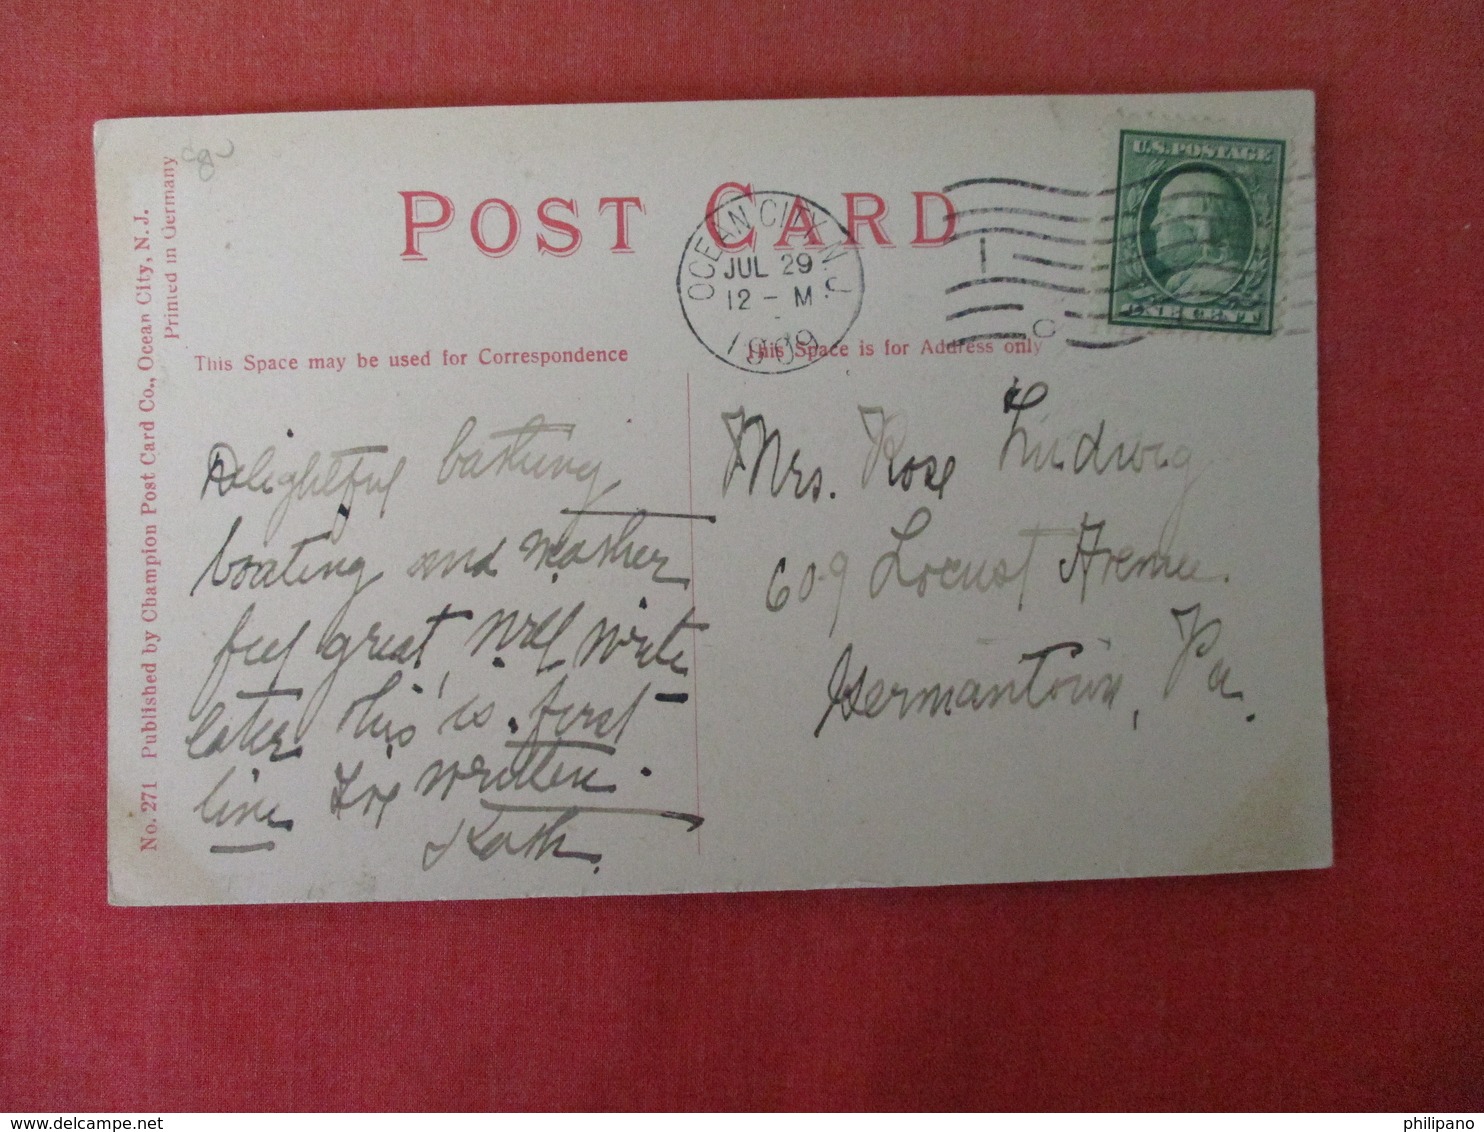 POST CARD
U.S. POSTAGE
ONE CENT
OCEAN CITY, N.J.
JUL 29
12 - M
1909
1
C
This Space may be used for Correspondence
This Space is for Address only
No. 271 Published by Champion Post Card Co., Ocean City, N. J.
Printed in Germany
Delightful bathing
boating and weather
feel great, will write
later this is first
line I've written.
Kath.
Mrs. Rose Ludwig
609 Locust Avenue.
Germantown, Pa.
www.delcampe.net
philipano